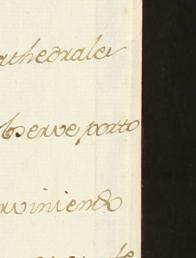 athedrales
bserve, porto
rviniendo